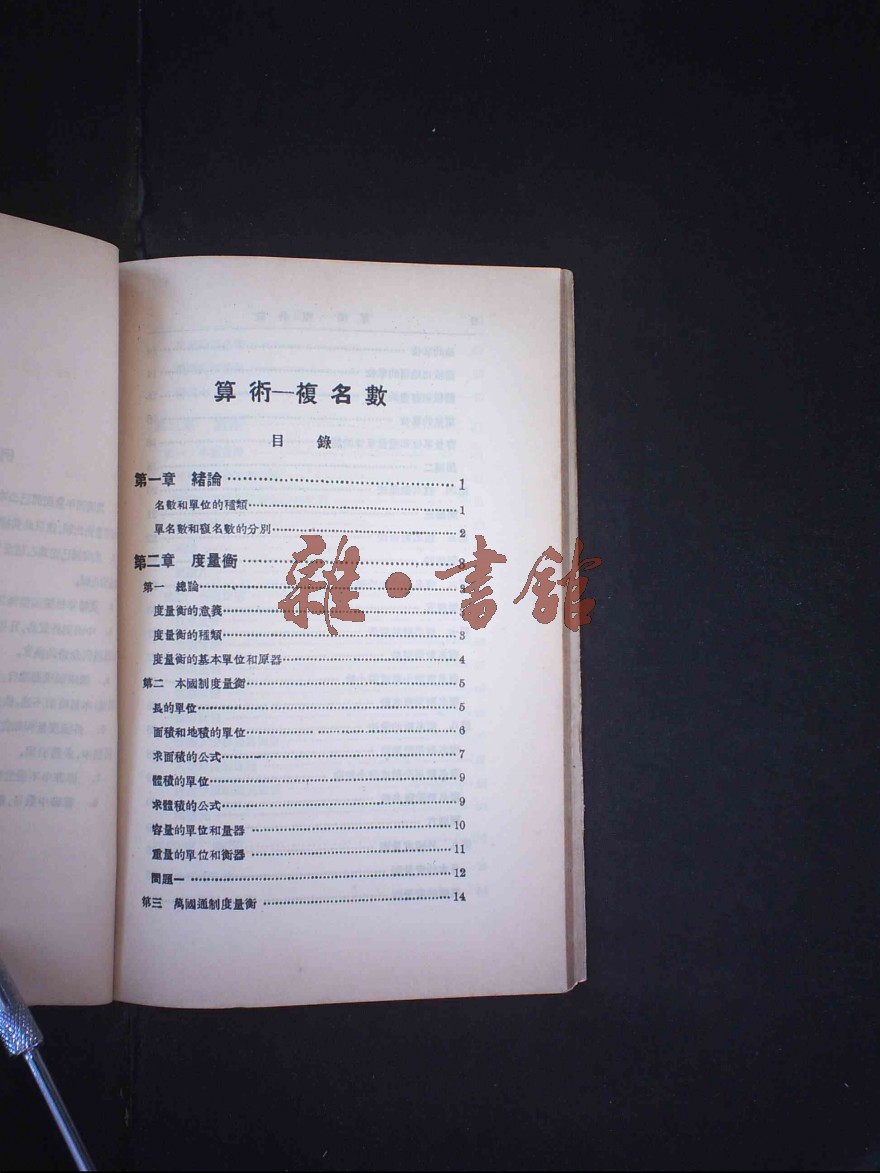 算術—複名數
目錄
第一章 緒論……1
名數和單位的種類……1
單名數和複名數的分別……2
第二章 度量衡……3
第一 總論……3
度量衡的意義……3
度量衡的種類……3
度量衡的基本單位和原器……4
第二 本國制度量衡……5
長的單位……5
面積和地積的單位……6
求面積的公式……7
體積的單位……9
求體積的公式……9
容量的單位和量器……10
重量的單位和衡器……11
問題一……12
第三 萬國通制度量衡……14
雜·書館